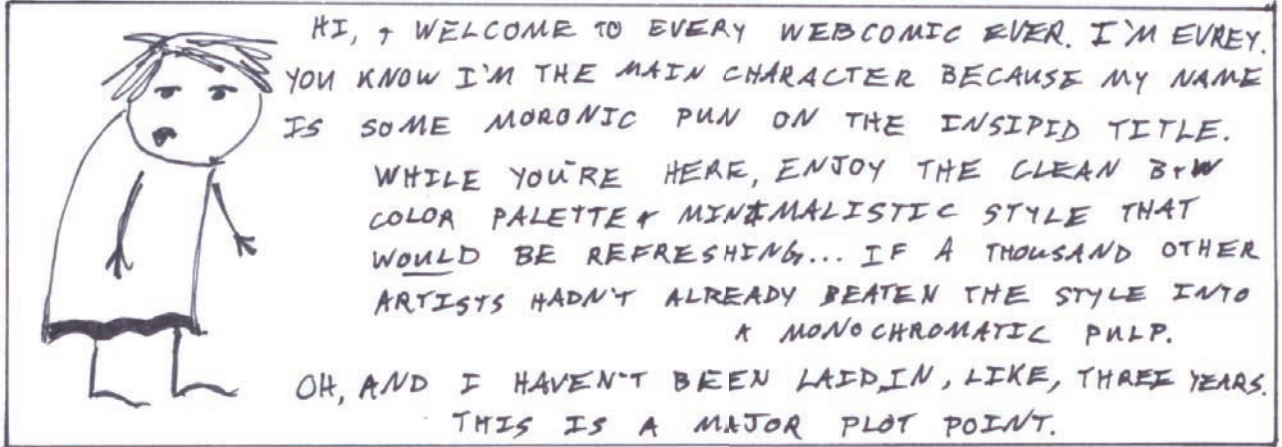 HI, + WELCOME TO EVERY WEBCOMIC EVER. I'M EVREY.
YOU KNOW I'M THE MAIN CHARACTER BECAUSE MY NAME
IS SOME MORONIC PUN ON THE INSIPID TITLE.
WHILE YOU'RE HERE, ENJOY THE CLEAN B+W
COLOR PALETTE + MINIMALISTIC STYLE THAT
WOULD BE REFRESHING... IF A THOUSAND OTHER
ARTISTS HADN'T ALREADY BEATEN THE STYLE INTO
A MONOCHROMATIC PULP.
OH, AND I HAVEN'T BEEN LAID, IN, LIKE, THREE YEARS.
THIS IS A MAJOR PLOT POINT.